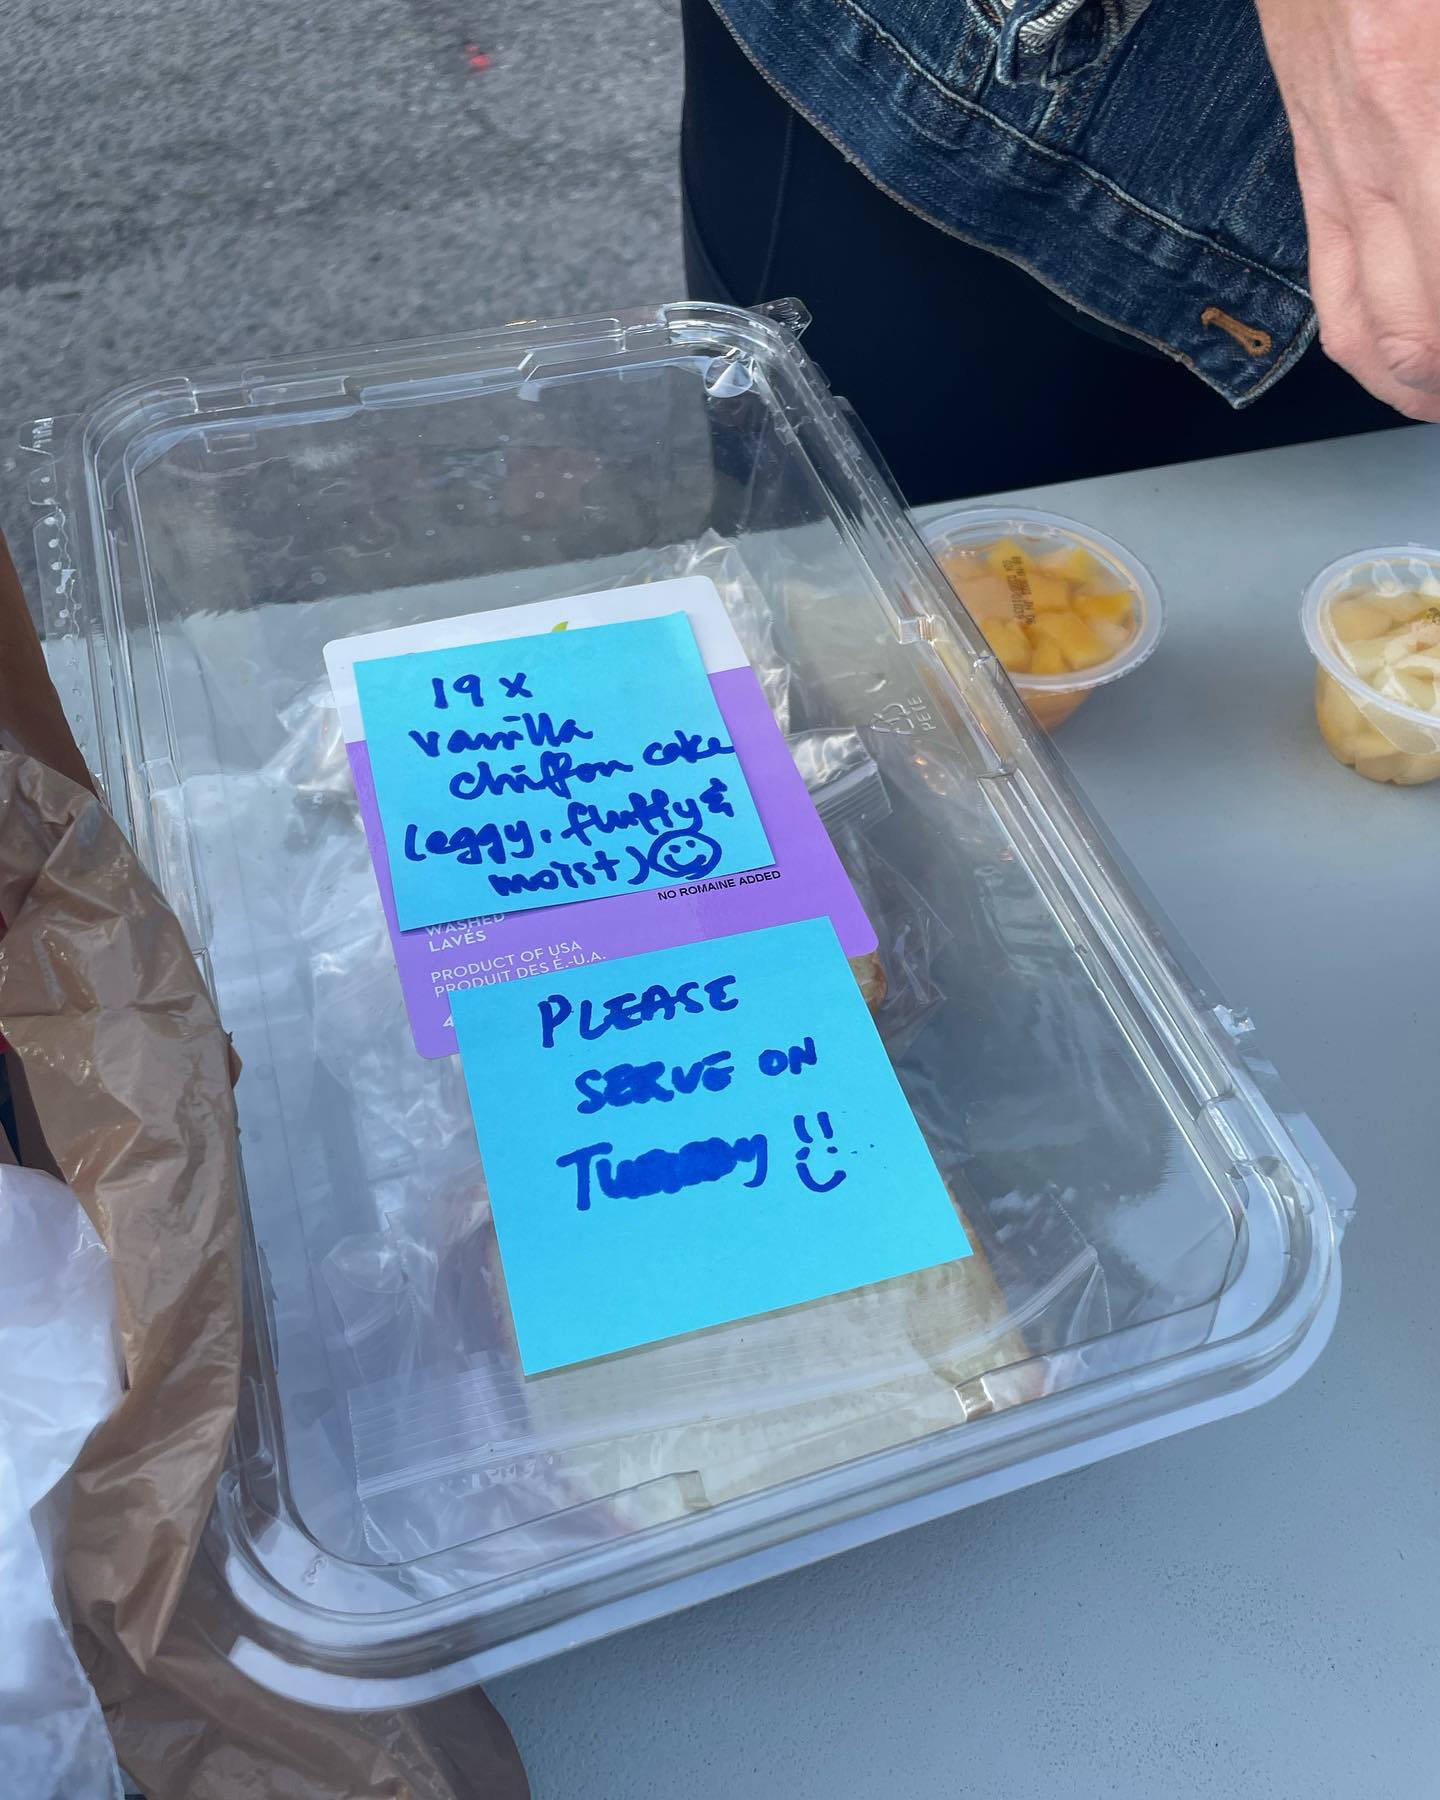 19 x
vanilla
chiffon cake
(eggy, fluffy &
moist)
NO ROMAINE ADDED
WASHED
LAVÉS
PRODUCT OF USA
PRODUIT DES É.-U.A.
4
PLEASE
SERVE ON
PETE